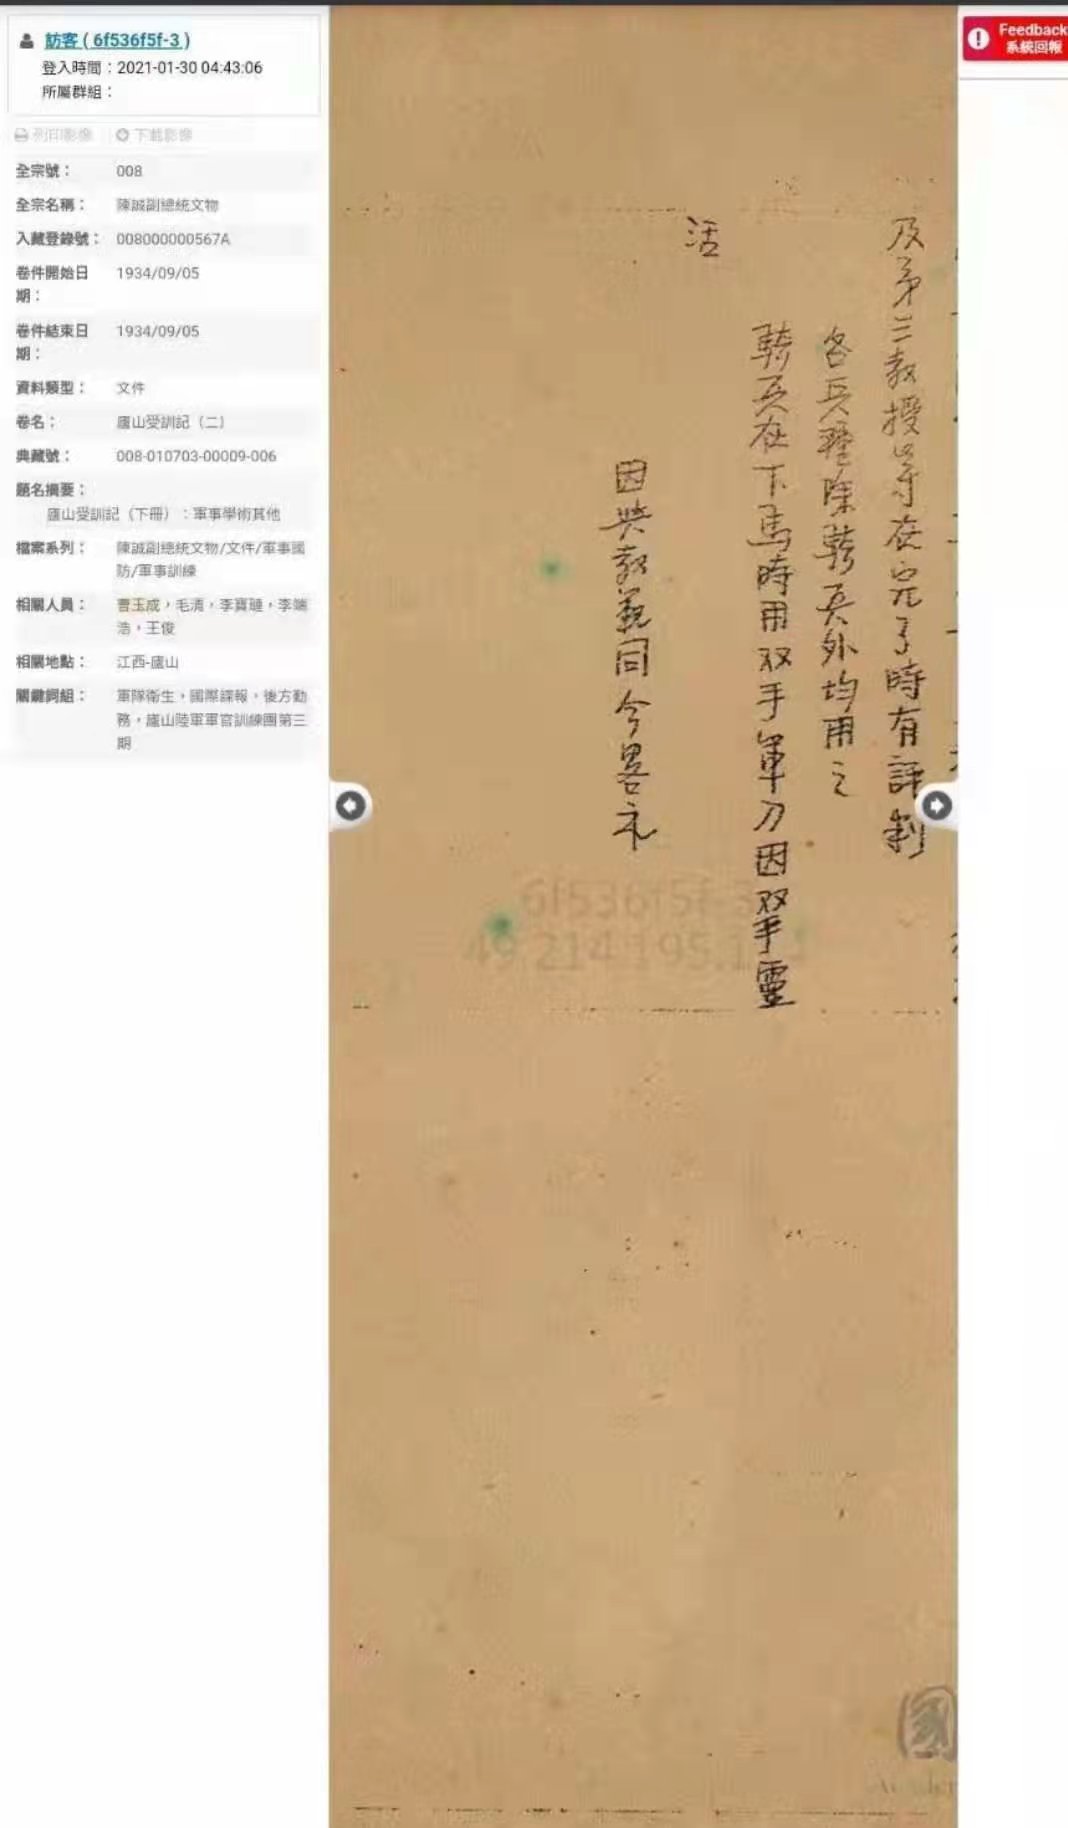 訪客 ( 6f536f5f-3 )
登入時間：2021-01-30 04:43:06
所屬群組：
列印影像 下載影像
全宗號： 008
全宗名稱： 陳誠副總統文物
入藏登錄號： 008000000567A
卷件開始日期： 1934/09/05
卷件結束日期： 1934/09/05
資料類型： 文件
卷名： 廬山受訓記（二）
典藏號： 008-010703-00009-006
題名摘要：
廬山受訓記（下冊）：軍事學術其他
檔案系列： 陳誠副總統文物/文件/軍事國
防/軍事訓練
相關人員： 曹玉成，毛清，李寶璉，李端
浩，王俊
相關地點： 江西-廬山
關鍵詞組： 軍隊衛生，國際諜報，後方勤
務，廬山陸軍軍官訓練團第三
期
Feedback
系統回報
及第三教授等在完了時有評判
各兵種除騎兵外均用之
騎兵在下馬時用双手軍刀因双手靈
活
因與教範同今畧礼
6f536f5f-3
49.214.195.1
國